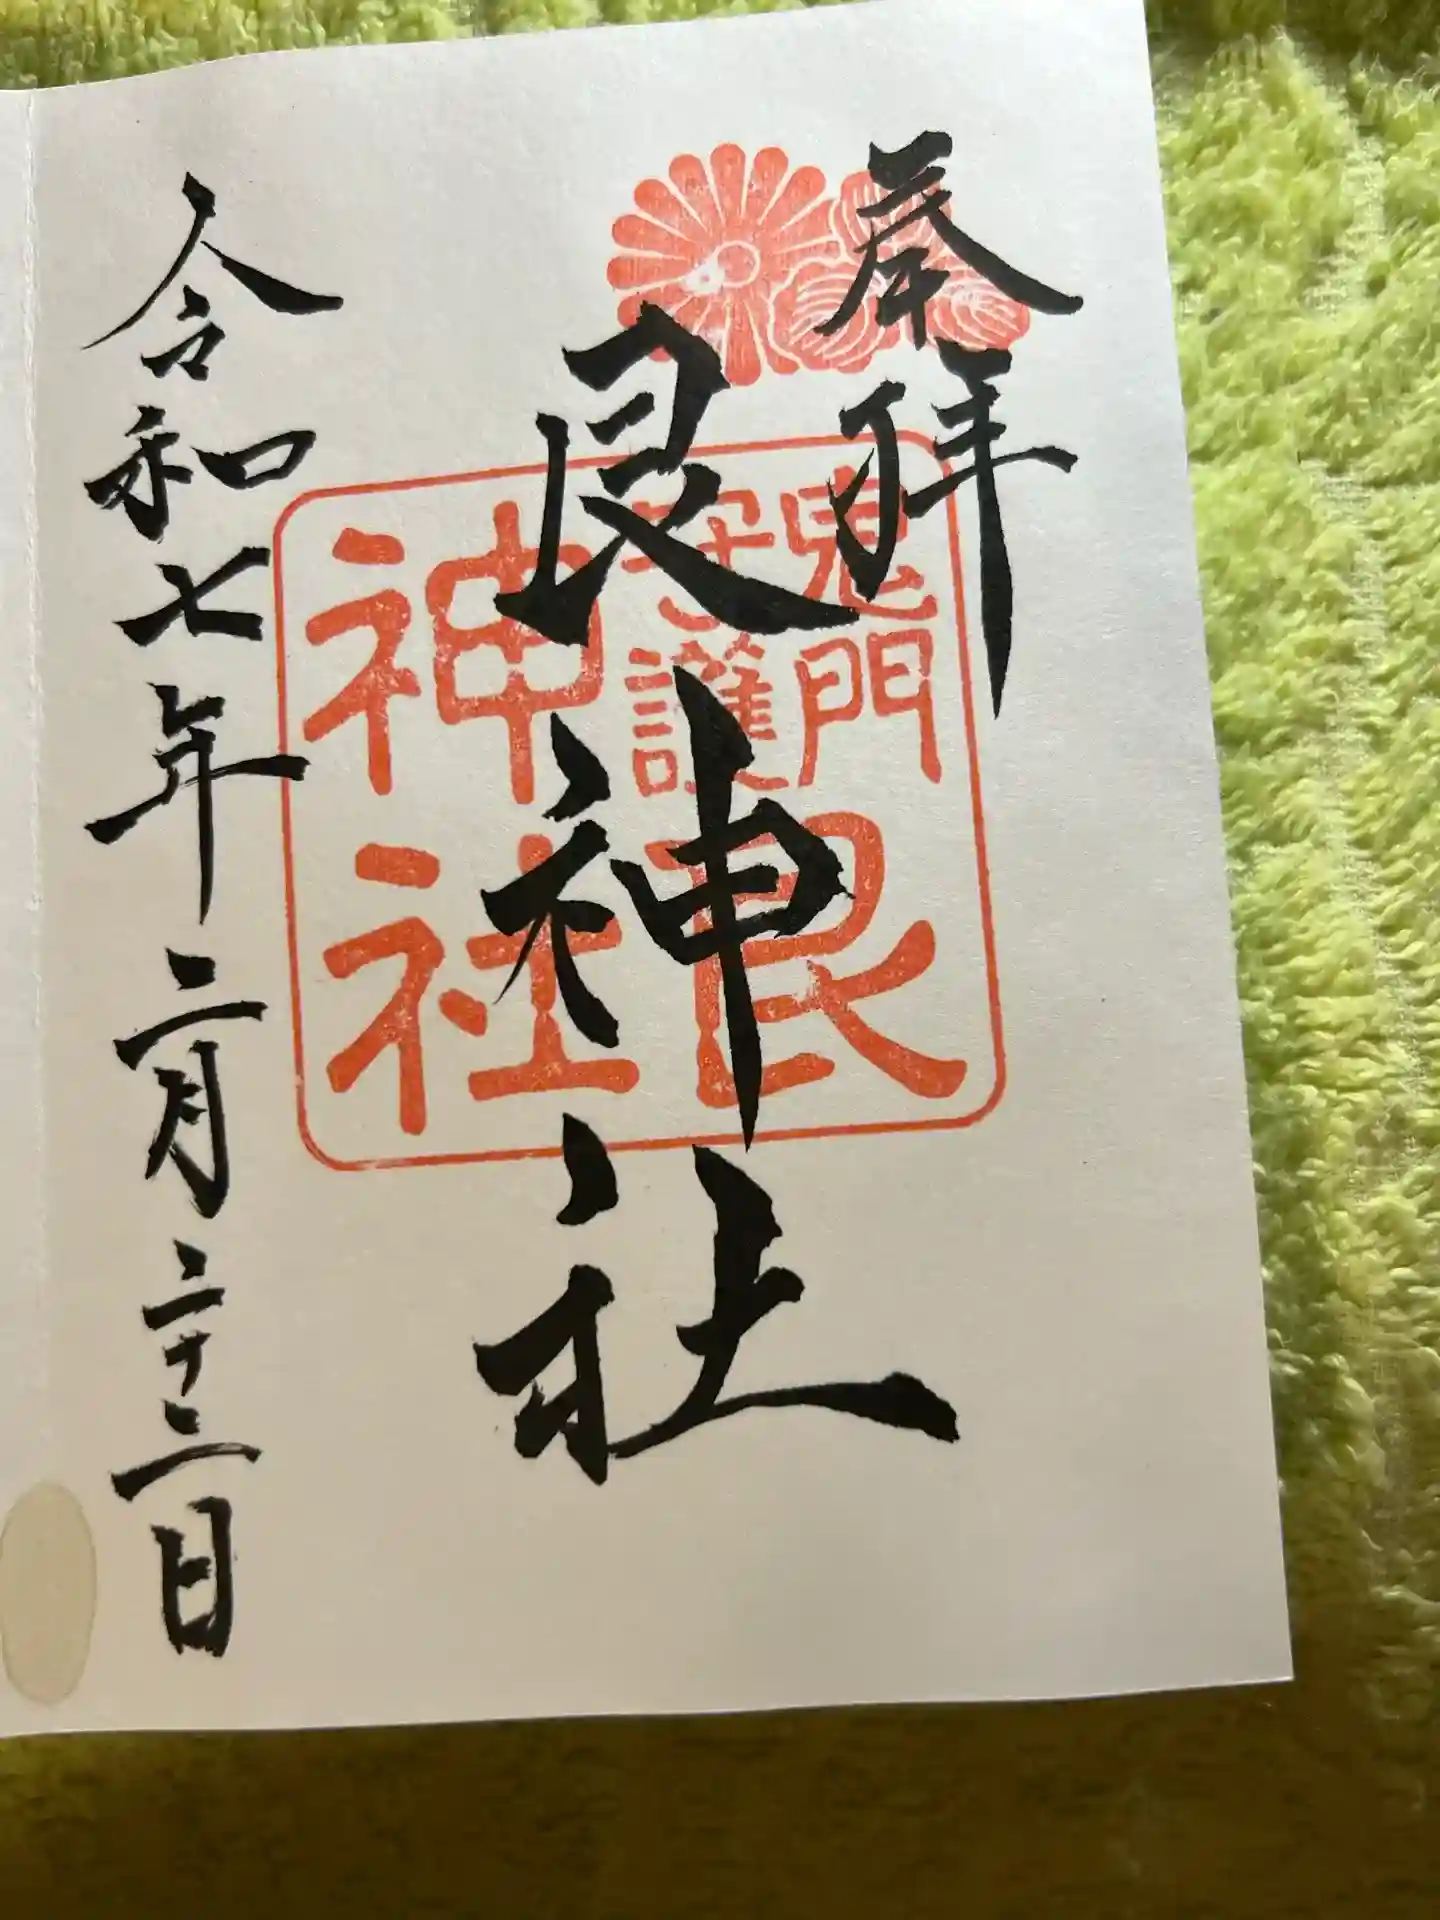 奉拝
艮神社
令和七年二月二十二日
鬼門
守護
艮
神社